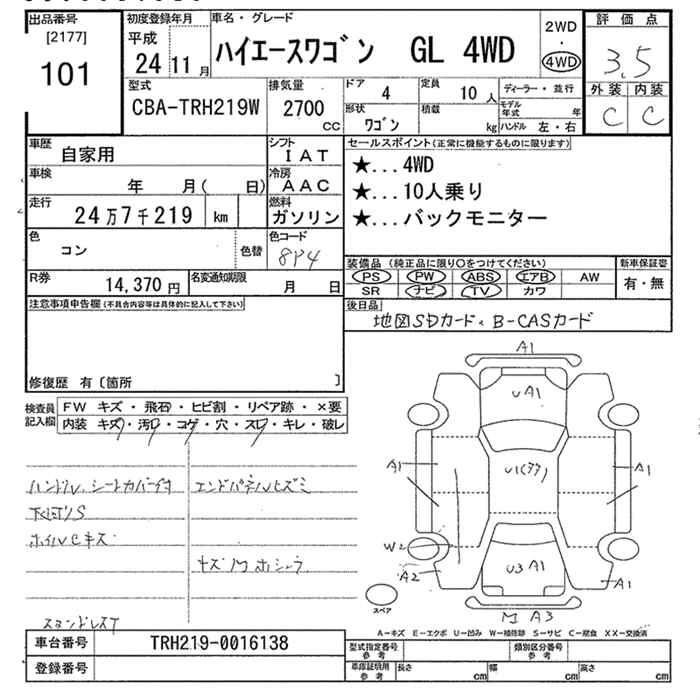 出品番号
[2177]
101
初度登録年月
平成
24 11月
車名・グレード
ハイエースワゴン GL 4WD
2WD
・
4WD
評価点
3.5
外装 内装
C C
型式
CBA-TRH219W
排気量
2700
CC
ドア
4
定員
10 人
形状
ワゴン
積載
kg
ディーラー・並行
モデル年式 年
ハンドル 左・右
車歴
自家用
シフト
IAT
車検
年 月( 日)
冷房
AAC
走行
24万7千219 km
燃料
ガソリン
色
コン
色替
色コード
8P4
R券
14,370 円
名変通知期限
月 日
セールスポイント(正常に機能するものに限ります)
★...4WD
★...10人乗り
★...バックモニター
装備品 (純正品に限り○をつけてください)
PS PW ABS エアB AW
SR ナビ TV カワ
新車保証書
有・無
後日品
地図SDカード、B-CASカード
注意事項申告欄(不具合内容等は具体的に記入して下さい)
修復歴 有〔箇所 〕
検査員記入欄
FW キズ・飛石・ヒビ割・リペア跡・×要
内装 キズ・汚・コゲ・穴・スレ・キレ・破レ
ハンドル、シートカバー付
下回りS
ホイルCキズ
スタンドレスT
エンドパネルヒズミ
キズ
A1
UA1
A1
U1
A1
W2
A2
U3 A1
A1
A3
スペア
A−キズ E−エクボ U−凹み W−補修跡 S−サビ C−腐食 XX−交換済
車台番号
TRH219-0016138
登録番号
型式指定番号 参考
類別区分番号 参考
車庫証明用 参考
長さ cm
幅 cm
高さ cm